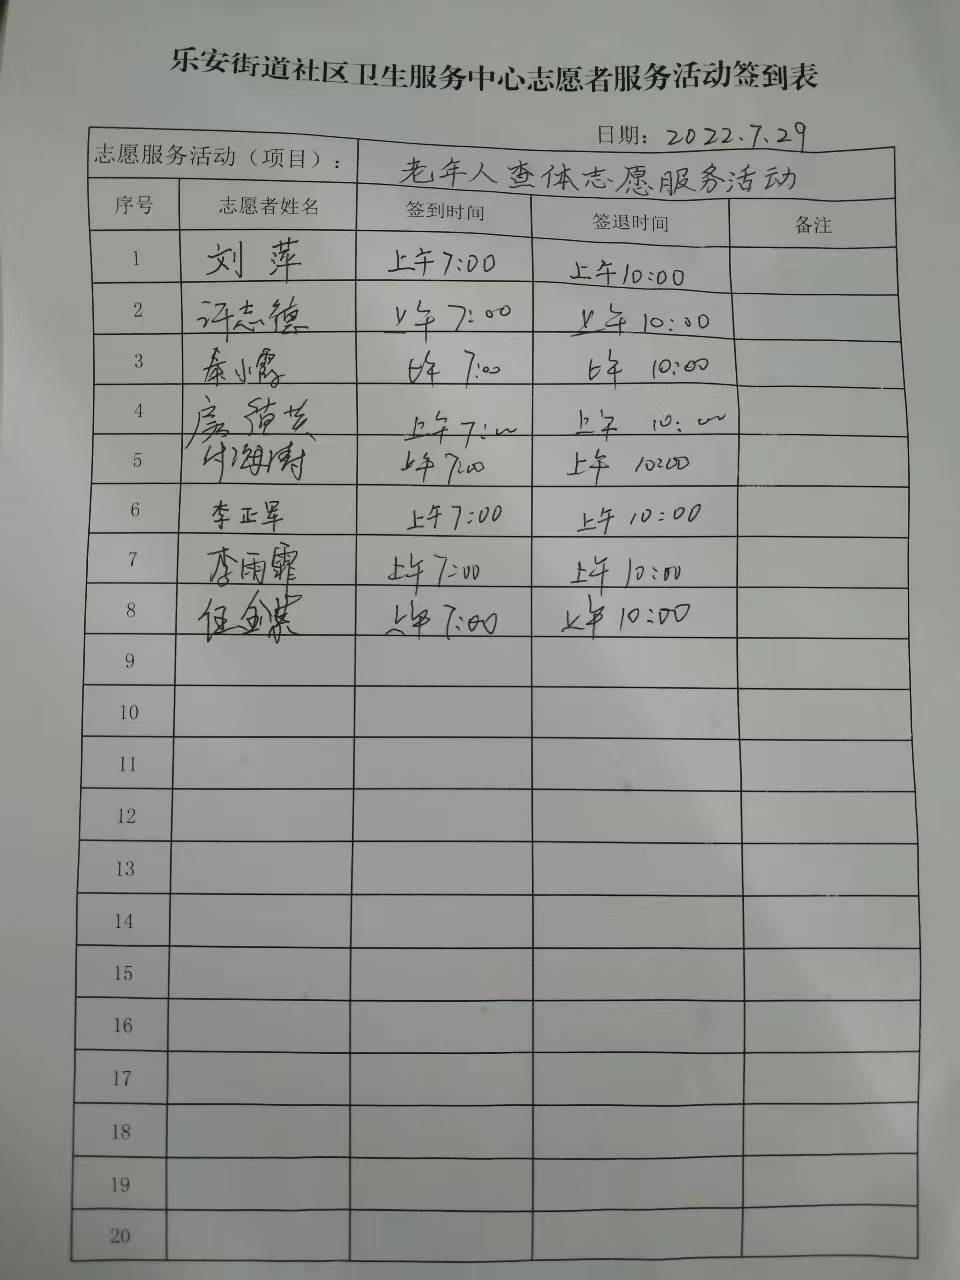 乐安街道社区卫生服务中心志愿者服务活动签到表
日期：2022.7.29
志愿服务活动（项目）： 老年人查体志愿服务活动
序号 志愿者姓名 签到时间 签退时间 备注
1 刘萍 上午7:00 上午10:00
2 许志德 上午 7:00 上午 10:00
3 秦小霞 上午 7:00 上午 10:00
4 上午 7:00 上午 10:00
5 付海涛 上午 7:00 上午 10:00
6 李正军 上午7:00 上午10:00
7 李雨霏 上午7:00 上午10:00
8 上午7:00 上午10:00
9
10
11
12
13
14
15
16
17
18
19
20